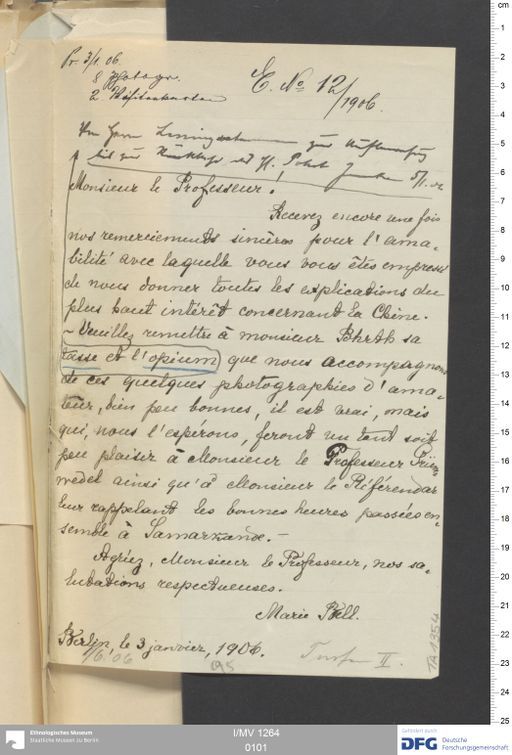 Pr. 3/1. 06.
8 Photogr.
2 Visitenkarten
E. No 12/1906.
Monsieur le Professeur!
Recevez encore une fois
nos remerciements sincères pour l'ama-
bilité avec laquelle vous vous êtes empressé
de nous donner toutes les explications du
plus haut intérêt concernant la Chine.
- Veuillez remettre à monsieur sa
tasse et l'opium que nous accompagnons
de ces quelques photographies d'ama-
teur, bien peu bonnes, il est vrai, mais
qui, nous l'espérons, feront un tant soit
peu plaisir à Monsieur le Professeur Grün-
wedel ainsi qu'à Monsieur le Référendar
leur rappelant les bonnes heures passées en-
semble à Samarzande. -
Agréez, Monsieur le Professeur, nos sa-
lutations respectueuses.
Marie Bell.
Berlin, le 3 janvier, 1906.
1/6. 06
195
Turfan II.
TA 1354
Ethnologisches Museum
Staatliche Museen zu Berlin
I/MV 1264
0101
Gefördert durch
DFG Deutsche
Forschungsgemeinschaft
cm
1
2
3
4
5
6
7
8
9
10
11
12
13
14
15
16
17
18
19
20
21
22
23
24
25